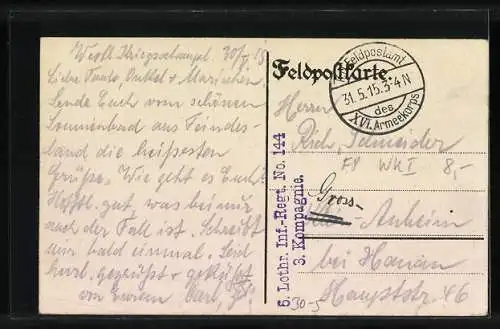 Westl. Kriegsschaupl. 30/V 15
Liebe Tante, Onkel + Mariechen.
Sende Euch vom schönen
Sonnenbad aus Feindes-
land die heißesten
Grüße. Wie geht es Euch?
Hofftl. gut, was bei mir
auch der Fall ist. Schreibt
mir bald einmal. Seid
herzl. gegrüßt + geküßt
von Eurem Carl,
Feldpostkarte.
Feldpostamt
31.5.15.3-4N
des
XVI. Armeekorps
Herrn
Rich. Schneider
FP WKI 8,-
Gross-
Auheim
bei Hanau
Hauptstr. 46
6. Lothr. Inf.-Regt. No. 144
3. Kompagnie.
30-5